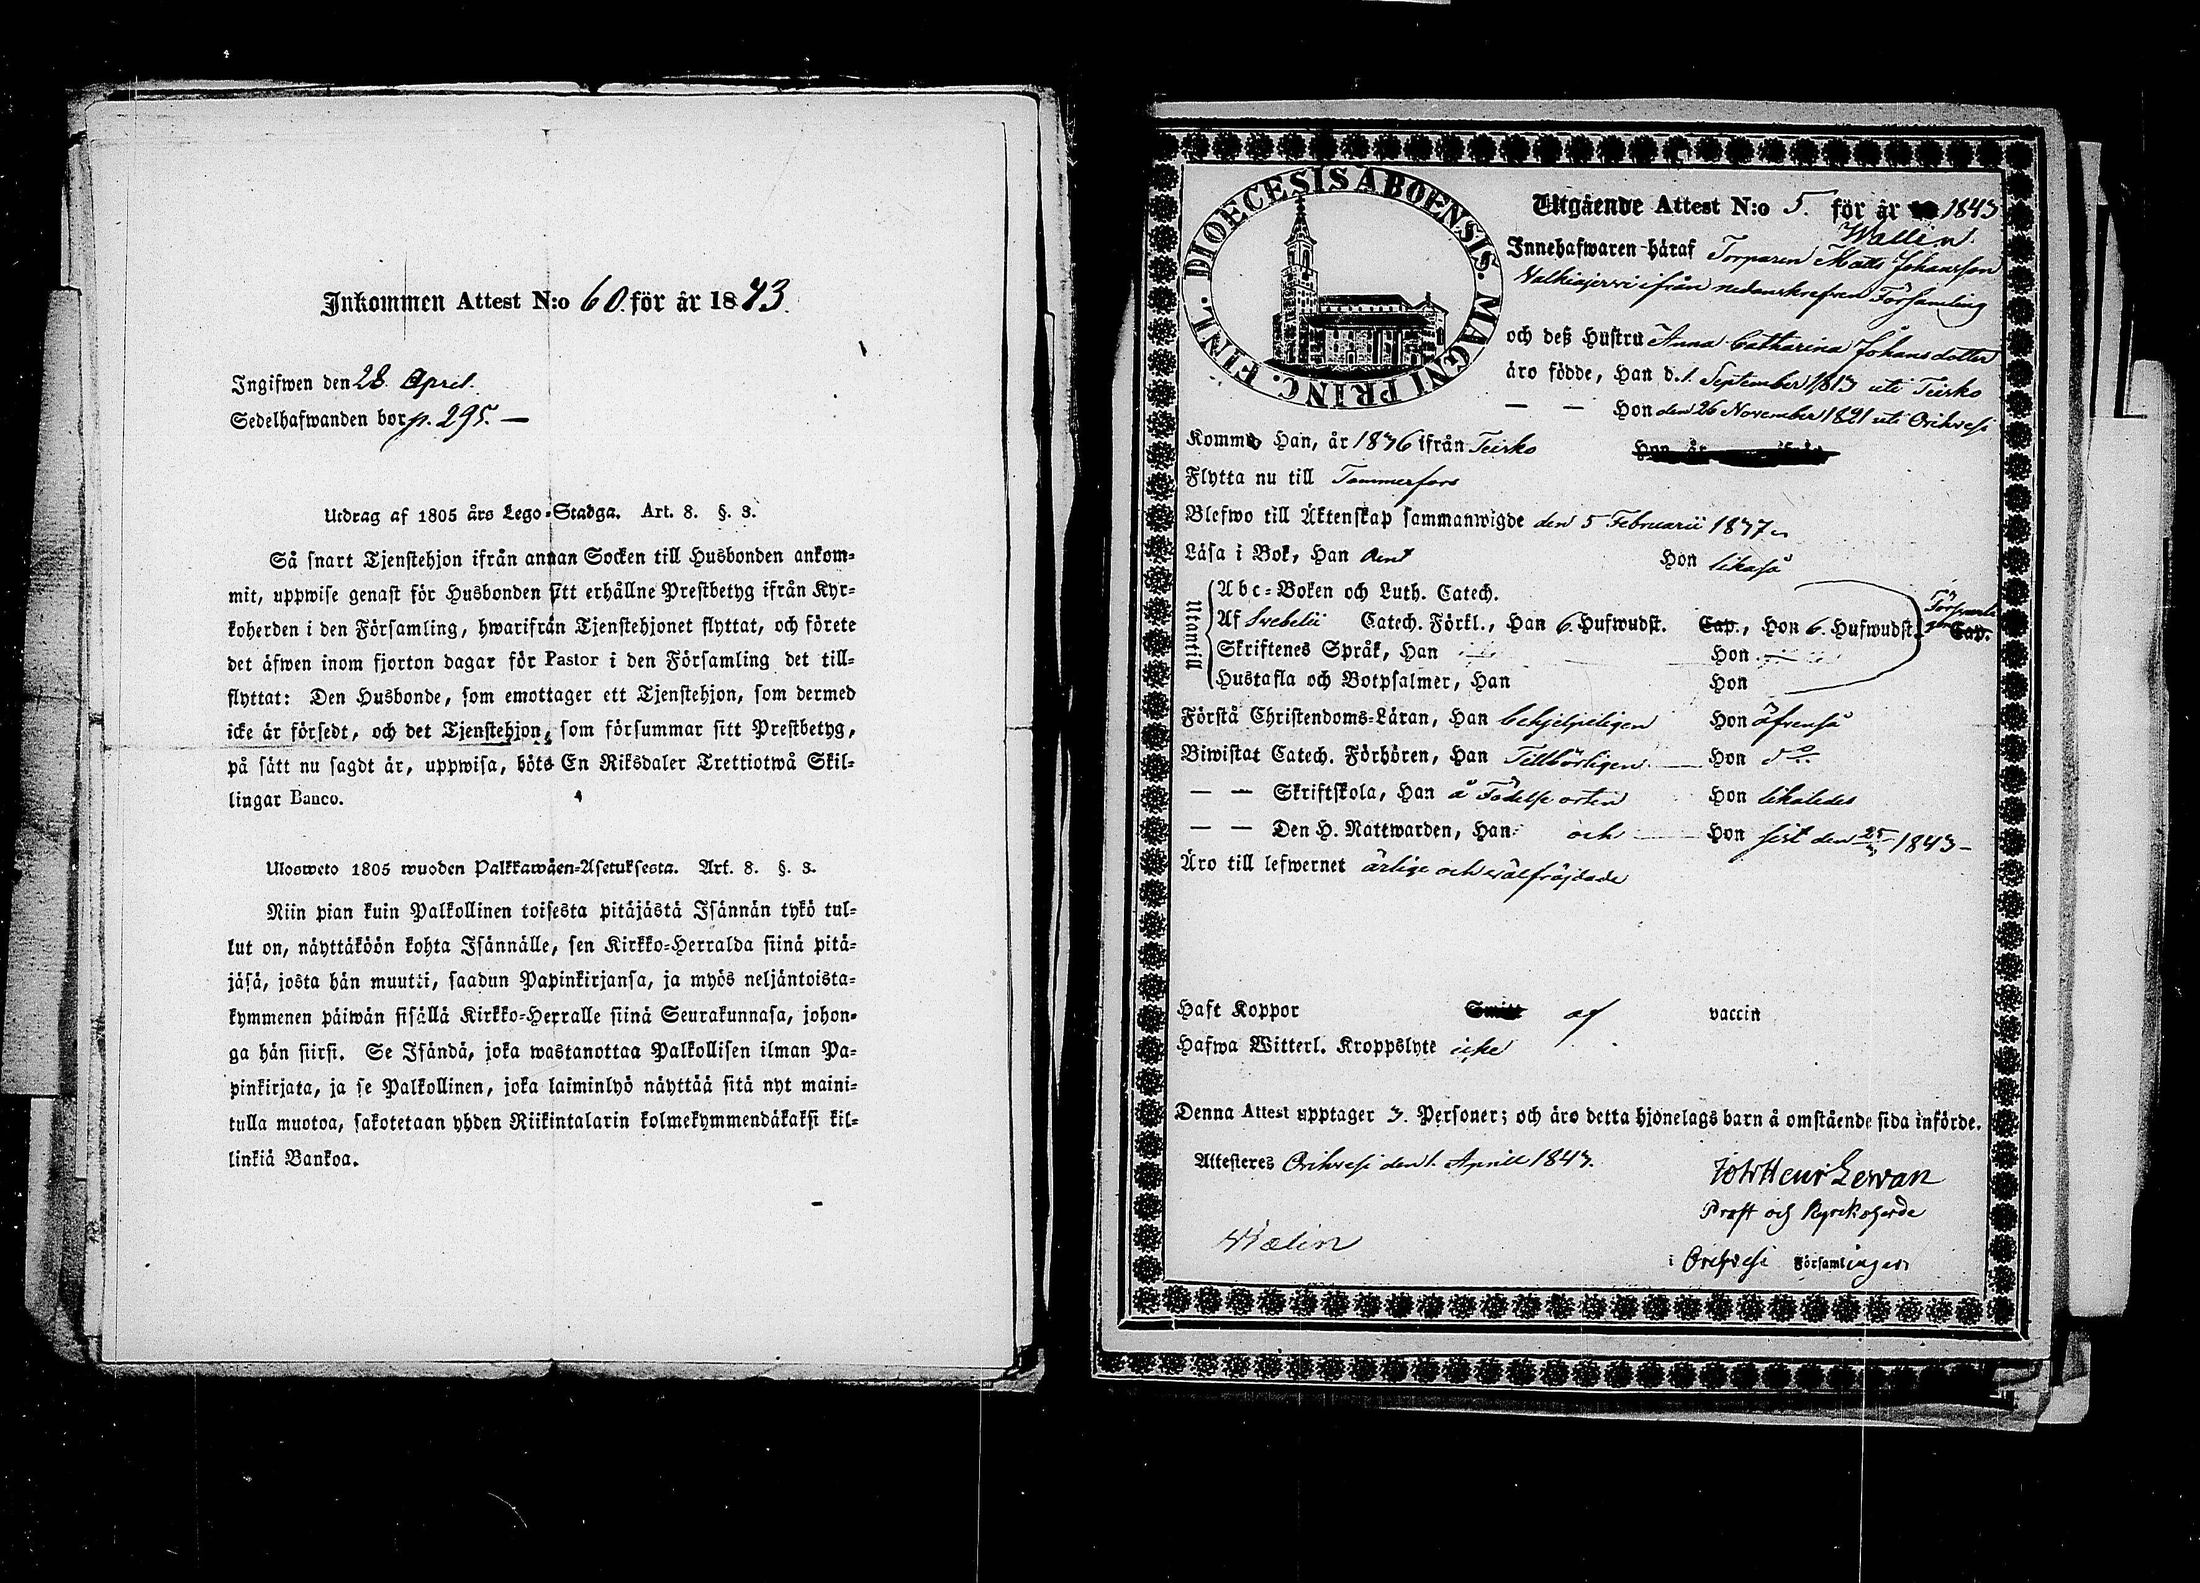 Inkommen Attest N:o 60. för år 1843.
Ingifwen den 28. April.
Sedelhafwanden bor p. 295. —
Utdrag af 1805 års Lego-Stadga. Art. 8. §. 3.
Så snart Tjenstehjon ifrån annan Socken till Husbonden ankom-
mit, uppwise genast för Husbonden sitt erhållne Prestbetyg ifrån Kyr-
koherden i den Församling, hwarifrån Tjenstehjonet flyttat, och förete
det äfwen inom fjorton dagar för Pastor i den Församling det till-
flyttat: Den Husbonde, som emottager ett Tjenstehjon, som dermed
icke är försedt, och det Tjenstehjon, som försummar sitt Prestbetyg,
på sätt nu sagdt är, uppwisa, böte En Riksdaler Trettiotwå Skil-
lingar Banco.
Ulosweto 1805 wuoden Palkkawäen-Asetuksesta. Art. 8. §. 3.
Niin pian kuin Palkollinen toisesta pitäjästä Isännän tykö tul-
lut on, näyttäköön kohta Isännälle, sen Kirkko-Herralda siinä pitä-
jäsä, josta hän muutti, saadun Papinkirjansa, ja myös neljäntoista-
kymmenen päiwän sisällä Kirkko-Herralle siinä Seurakunnasa, johon-
ga hän siirsi. Se Isändä, joka wastanottaa Palkollisen ilman Pa-
pinkirjata, ja se Palkollinen, joka laiminlyö näyttää sitä nyt maini-
tulla muotoa, sakotetaan yhden Riikintalarin kolmekymmendäkaksi kil-
linkiä Bankoa.
DIOECESIS ABOENSIS. MAGNI PRINC. FINL.
Utgående Attest N:o 5. för år 1843
Wallin.
Innehafwaren häraf Torparen Matts Johansson
Valkiajerwi ifrån nedanskrefven Församling
och deß Hustru Anna Catharina Johansdotter
äro födde, Han d. 1. September 1813 uti Teisko
— — Hon den 26 November 1821 uti Orihvesi
Komme Han, år 1836 ifrån Teisko
Flytta nu till Tammerfors
Blefwo till Äktenskap sammanwigde den 5 Februarii 1837
Läsa i Bok, Han rent Hon likaså
Utantill
Abc-Boken och Luth. Catech.
Af Svebelii Catech. Förkl., Han 6. Hufwudst. Cap., Hon 6. Hufwudst. Cap.
Skriftenes Språk, Han Hon
Hustafla och Botpsalmer, Han Hon
Förstå Christendoms-Läran, Han behjelpeligen Hon äfvenså
Biwistat Catech. Förhören, Han Tillbörligen Hon do
— — Skriftskola, Han å Födelse orten Hon likaledes
— — Den H. Nattwarden, Han och Hon sist den 25/3 1843 —
Äro till lefwernet ärlige och välfräjdade
Haft Koppor af vaccin
Hafwa Witterl. Kroppslyte icke
Denna Attest upptager 3. Personer; och äro detta hjonelags barn å omstående sida införde.
Attesteres Orihvesi den 1. Aprill 1843.
Joh Henr Lewan
Prost och Kyrckoherde
i Orihvesi Församlingen
Walin